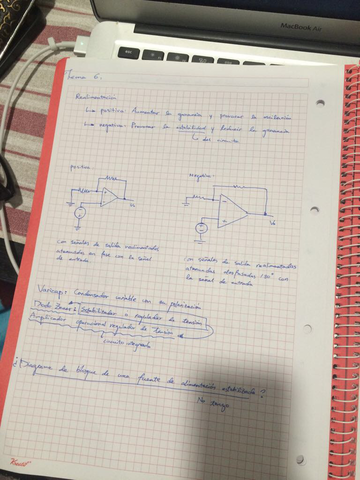 MacBook Air
Tema 6:
Realimentación
positiva: Aumentar la ganancia y provocar la oscilación
negativa: Provocar la estabilidad y reducir la ganancia
del circuito
positiva
negativa
Vo
Vo
señales de salida realimentadas
atenuadas en fase con la señal
de entrada
señales de salida realimentadas
atenuadas desfasadas 180° con
la señal de entrada
Varicap: Condensador variable con su polarización
Diodo Zener: Estabilizador o regulador de tensión
Amplificador operacional regulador de tensión
circuito integrado
¿Diagrama de bloques de una fuente de alimentación estabilizada?
No tengo